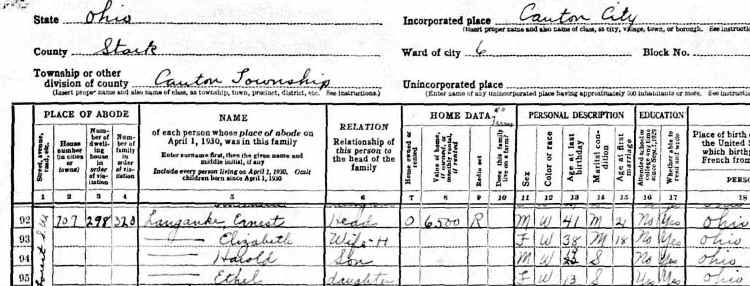 State Ohio Incorporated place Canton City
(Insert proper name and also name of class, as city, village, town, or borough. See instructio
County Stark Ward of city 6 Block No.
Township or other
division of county Canton Township Unincorporated place
(Insert proper name and also name of class, as township, town, precinct, district, etc. See instructions.) (Enter name of any unincorporated place having approximately 500 inhabitants or more. See instructio
PLACE OF ABODE NAME RELATION HOME DATA PERSONAL DESCRIPTION EDUCATION Place of birth
Street, avenue, road, etc. House number (in cities or towns) Number of dwelling house in order of visitation Number of family in order of visitation
of each person whose place of abode on
April 1, 1930, was in this family
Enter surname first, then the given name and
middle initial, if any
Include every person living on April 1, 1930. Omit
children born since April 1, 1930
Relationship of
this person to
the head of the
family
Home owned or rented Value of home, if owned, or monthly rental, if rented Radio set Does this family live on a farm?
Sex Color or race Age at last birthday Marital condition Age at first marriage
Attended school or college any time since Sept. 1, 1929 Whether able to read and write
the United
which birth
French from
PERSO
1 2 3 4 5 6 7 8 9 10 11 12 13 14 15 16 17 18
92 707 298 323 Langanke Ernest Head O 6500 R M W 41 M 21 No Yes Ohio
93 Elizabeth Wife-H F W 38 M 18 No Yes Ohio
94 Harold Son M W S No Yes Ohio
95 Ethel daughter F W 13 S Yes Yes Ohio